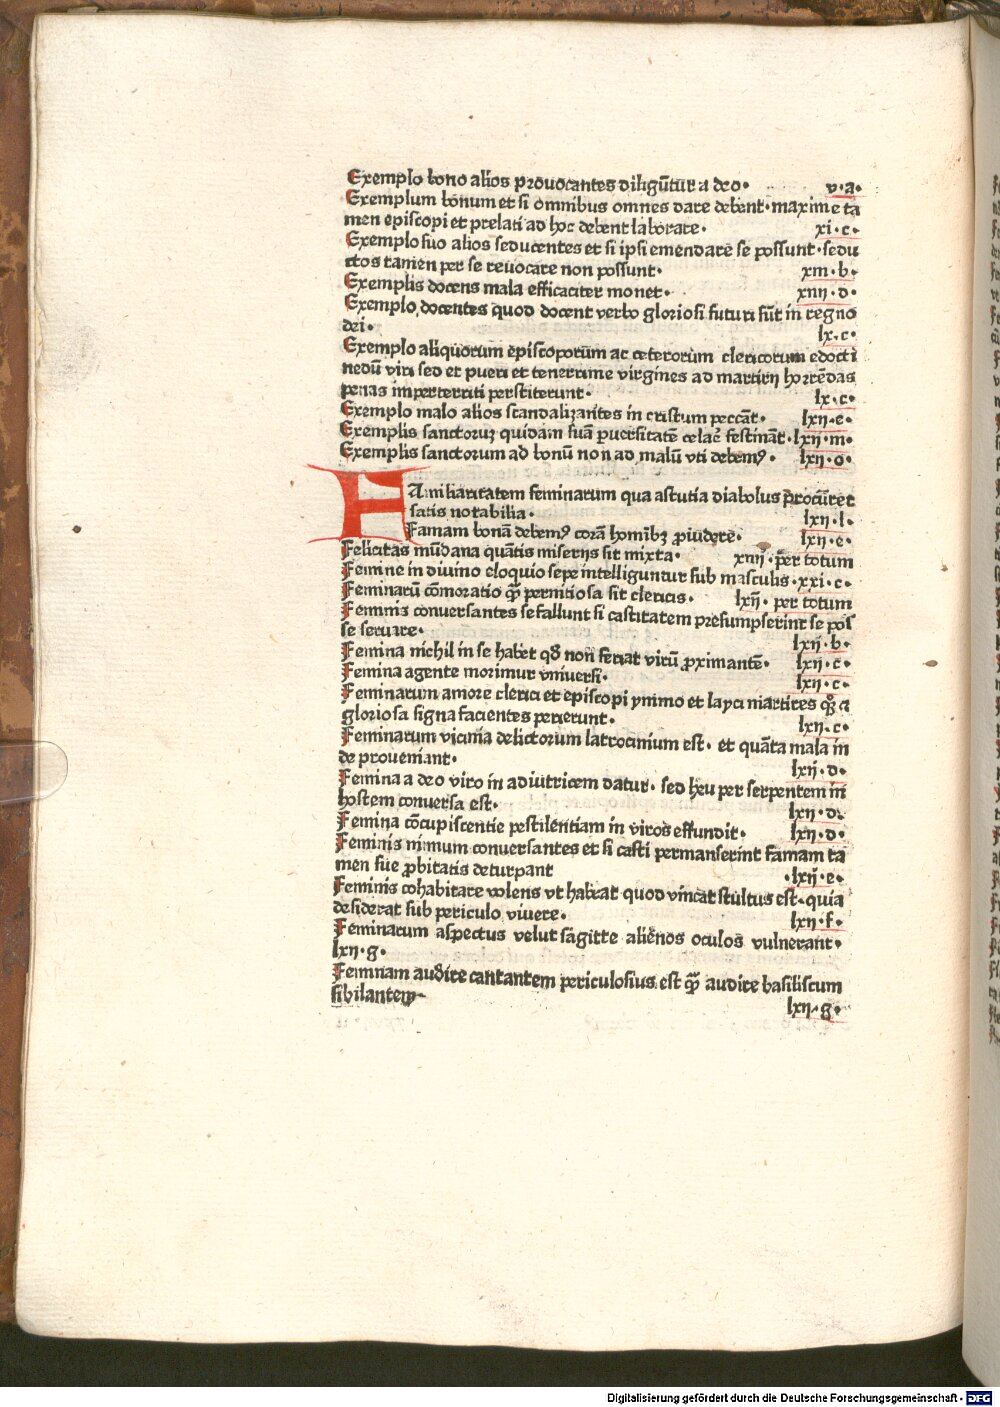 Exemplo bono alios prouocantes diligūtur a deo· v·a·
Exemplum bonum et si omnibus omnes dare debent·maxime ta
men episcopi et prelati ad hoc debent laborare· xi·c·
Exemplo suo alios seducentes et si ipsi emendare se possunt·sedu
ctos tamen per se reuocare non possunt· xiii·b·
Exemplis docens mala efficaciter monet· xiiii·d·
Exemplo docentes quod docent verbo gloriosi futuri sūt in regno
dei· lx·c·
Exemplo aliquorum episcoporum ac ceterorum clericorum edocti
nedū viri sed et pueri et tenerrime virgines ad martirij horrēdas
penas imperterriti perstiterunt· lx·c·
Exemplo malo alios scandalizantes in cristum peccāt· lxii·e·
Exemplis sanctoruꝫ quidam suā ꝑuersitatē celare festināt·lxii·m·
Exemplis sanctorum ad bonū non ad malū vti debemꝰ· lxii·o·
FAmiliaritatem feminarum qua astutia diabolus procuret
satis notabilia· lxii·l·
Famam bonā debemꝰ corā hominibꝫ prouidere· lxii·e·
Felicitas mūdana quātis miseriis sit mixta· xiiij· per totum
Femine in diuino eloquio sepe intelliguntur sub masculis·xxi·c·
Feminarū cōmoratio ꝙ̄ pernitiosa sit clericis· lxij· per totum
Feminis conuersantes se fallunt si castitatem presumpserint se pos
se seruare· lxij·b·
Femina nichil in se habet qd non feriat virū proximantē· lxij·c·
Femina agente morimur vniuersi· lxii·c·
Feminarum amore clerici et episcopi ymmo et layci martires qꝫ a
gloriosa signa facientes perierunt· lxii·c·
Feminarum vicinia delictorum latrocinium est· et quāta mala in
de proueniant· lxij·d·
Femina a deo viro in adiutricem datur· sed heu per serpentem in
hostem conuersa est· lxii·d·
Femina cōcupiscentie pestilentiam in viros effundit· lxij·d·
Feminis nimium conuersantes et si casti permanserint famam ta
men sue probitatis deturpant ·lxij·e·
Feminis cohabitare volens vt habeat quod vincat stultus est·quia
desiderat sub periculo viuere· lxii·f·
Feminarum aspectus velut sagitte alienos oculos vulnerant·
lxii·g·
Feminam audire cantantem periculosius est ꝙ̄ audire basiliscum
sibilantem· lxii·g·
Digitalisierung gefördert durch die Deutsche Forschungsgemeinschaft - DFG